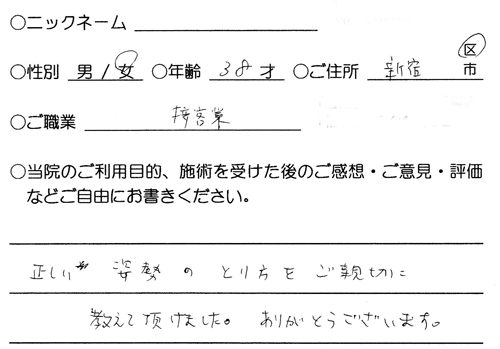 ○ニックネーム
○性別 男 / 女 ○年齢 38 才 ○ご住所 新宿 区
市
○ご職業 接客業
○当院のご利用目的、施術を受けた後のご感想・ご意見・評価
などご自由にお書きください。
正しい 姿勢 の とり方を ご親切に
教えて頂けました。 ありがとうございます。